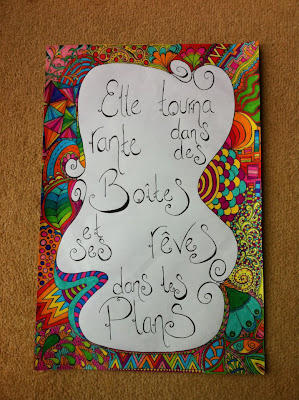 Elle tourna
rante dans
des
Boîtes
et
ses rêves
dans les
Plans